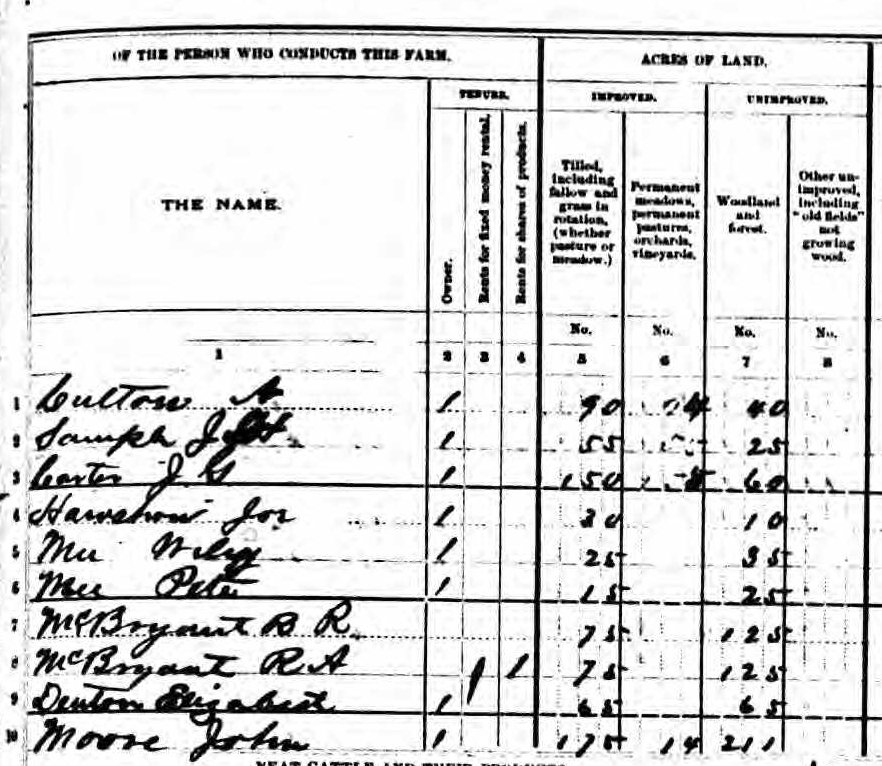 OF THE PERSON WHO CONDUCTS THIS FARM. ACRES OF LAND.
TENURE. IMPROVED. UNIMPROVED.
THE NAME.
Owner.
Rents for fixed money rental.
Rents for shares of products.
Tilled, including fallow and grass in rotation, (whether pasture or meadow.)
Permanent meadows, permanent pastures, orchards, vineyards.
Woodland and forest.
Other unimproved, including "old fields" not growing wood.
No. No. No. No.
1 2 3 4 5 6 7 8
1 Culton A 1 90 40
2 Sample J 1 55 25
3 Carter J G 1 150 60
4 1 30 10
5 Wiley 1 25 35
6 Pete 1 15 25
7 McBryant B R 75 125
8 McBryant R A 1 75 125
9 Denton Elizabeth 1 65 65
10 Moore John 1 175 14 211
NEAT CATTLE AND THEIR PRODUCTS